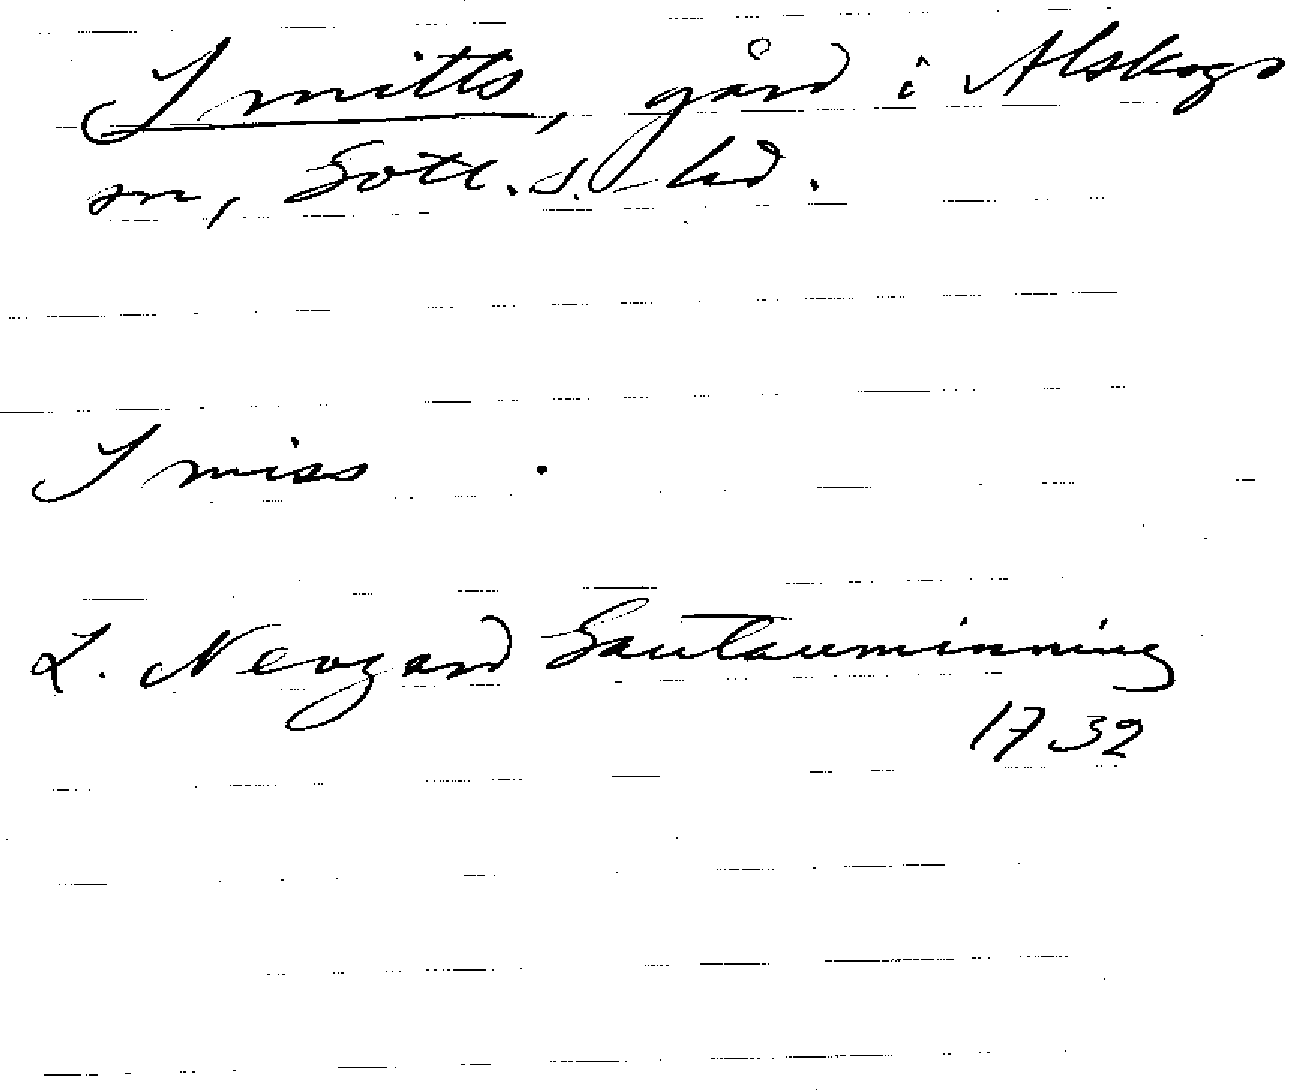 Smitts, gård i Alskogs
sn, Gotl. s. hd.
Smiss .
L. Neogard Gautauminning
1732